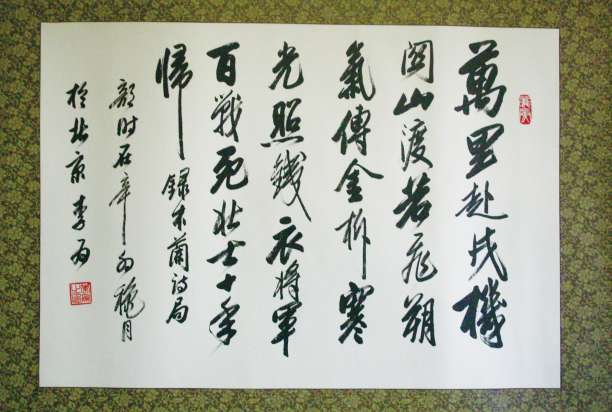 萬里赴戎機
関山渡若飛朔
氣傳金柝寒
光照鐵衣將軍
百戰死壯士十年
歸 錄木蘭詩句
時在辛卯穐月
於北京李